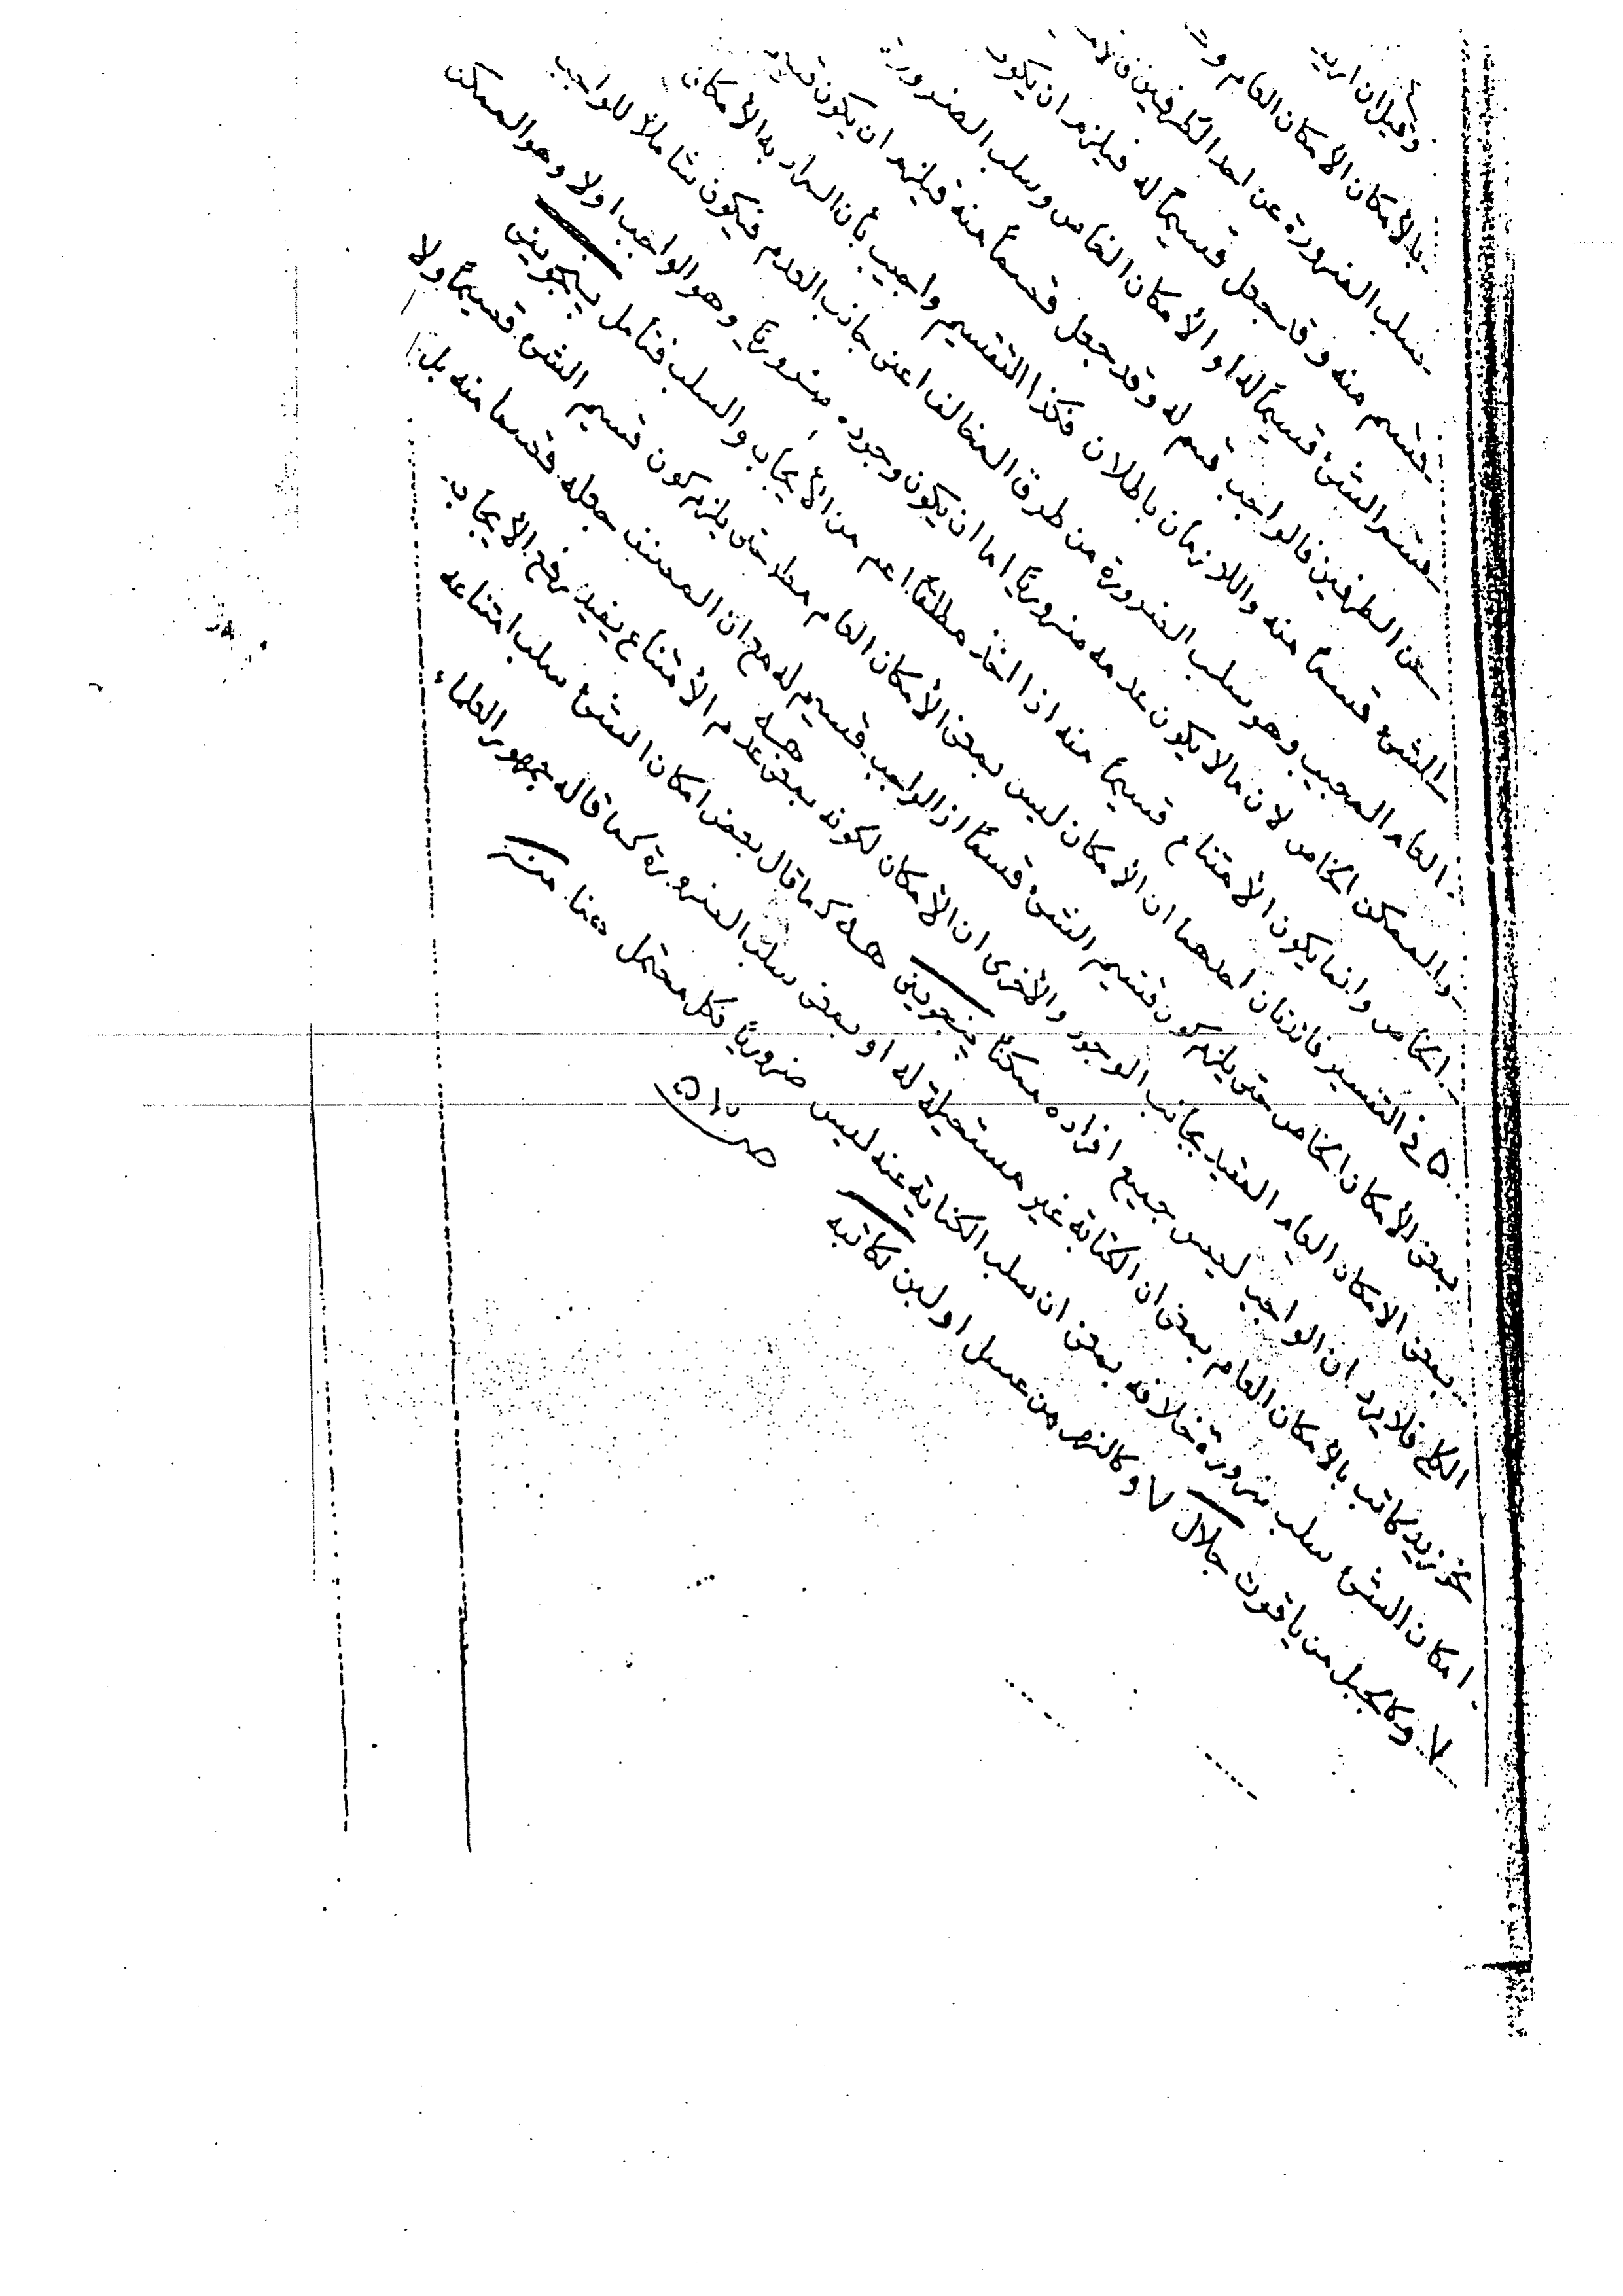 وقيل ان اريد
بالأمكان الأمكان العام و
سلب الضرورة عن احد الطرفين فالامـ
قسم منه وقد جعل قسيماً له فيلزم ان يكون
قسم الشئ قسيماً له او الأمكان الخاص وسلب الضرورة
عن الطرفين فالواجب قسيم له وقد جعل قسماً منه فيلزم ان يكون قسيم
الشئ قسماً منه واللازمان باطلان فكذا التقسيم واجيب بأن المراد به الأمكان
العام المجيب وهو سلب الضرورة من طرف المخالف اعنى جانب العدم فيكون شاملاً للواجب
والممكن الخاص لان مالا يكون عدمه ضرورياً اما ان يكون وجوده ضرورياً وهو الواجب او لا وهو الممكن
الخاص وانما يكون الأمتناع قسيماً منه اذا اخذ مطلقاً اعم من الأيجاب والسلب فتأمل پينجوينى
فى التفسير فائدتان احدهما ان الأمكان ليس بمعنى الأمكان العام مطلـ حتى يلزم كون قسيم الشئ قسيماً ولا
بمعنى الأمكان الخاص حتى يلزم كون قسيم الشئ قسماً اذ الواجب قسيم له مع ان المصنف جعله قسما منه بل
بمعنى الامكان العام المقيد بجانب الوجود والأخرى ان الأمكان لكونه بمعنى عدم الأمتناع يفيد رفع الأيجاب
الكلى فلا يرد ان الواجب ليس جميع افراده ممكناً پينجوينى هـه كما قال بعض امكان الشئ سلب امتناعه
نحو زيد كاتب بالأمكان العام بمعنى ان الكتابة غير مستحيلة له او بمعنى سلب الضرورة كما قاله جمهور العلماء
امكان الشئ سلب ضرورة خلافه بمعنى ان سلب الكتابة عنه ليس ضرورياً فكل محتمل هنا منه
لا وكالجبل من ياقوت جلال ٧ وكالنهر من عسل او لبن لكاتبه